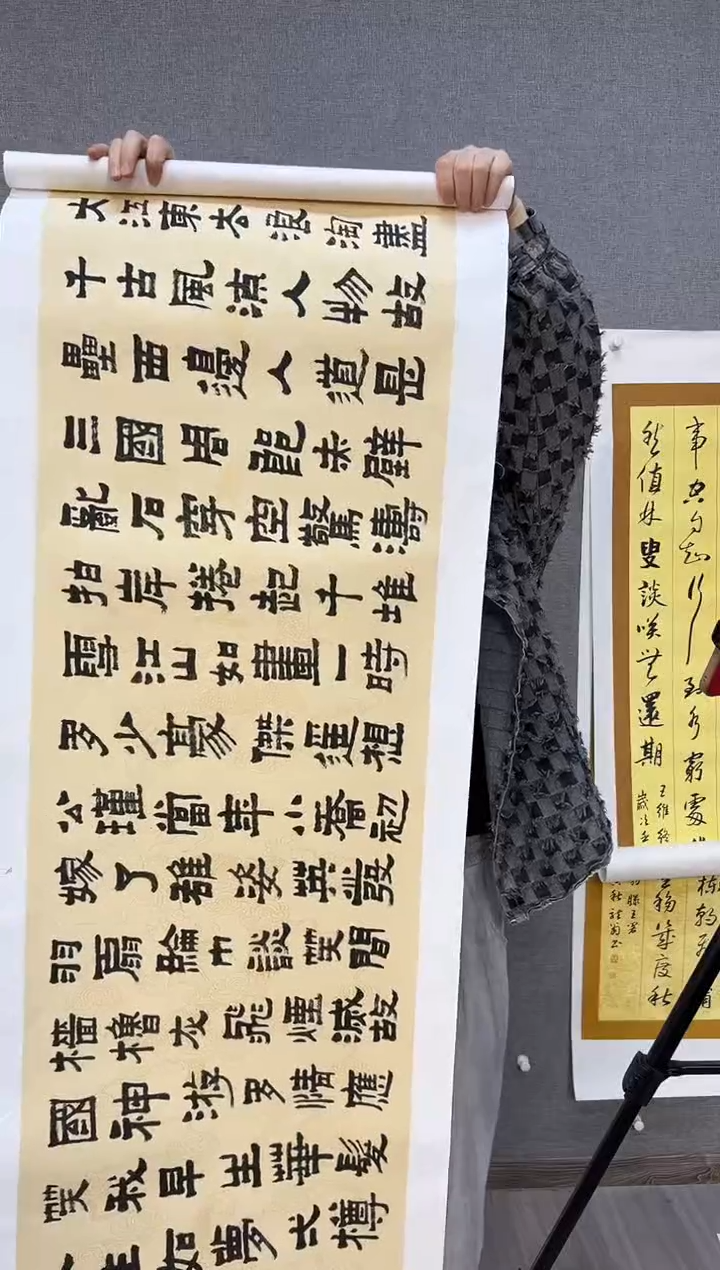 大江東去浪淘盡
千古風流人物故
壘西邊人道是
三國周郎赤壁
亂石穿空驚濤
拍岸捲起千堆
雪江山如畫一時
多少豪傑遥想
公瑾當年小喬初
嫁了雄姿英發
羽扇綸巾談笑間
檣櫓灰飛煙滅故
國神游多情應
笑我早生華髮
人生如夢弌樽
事空自知行到水窮處
然值林叟談笑無還期
王維終
歲次